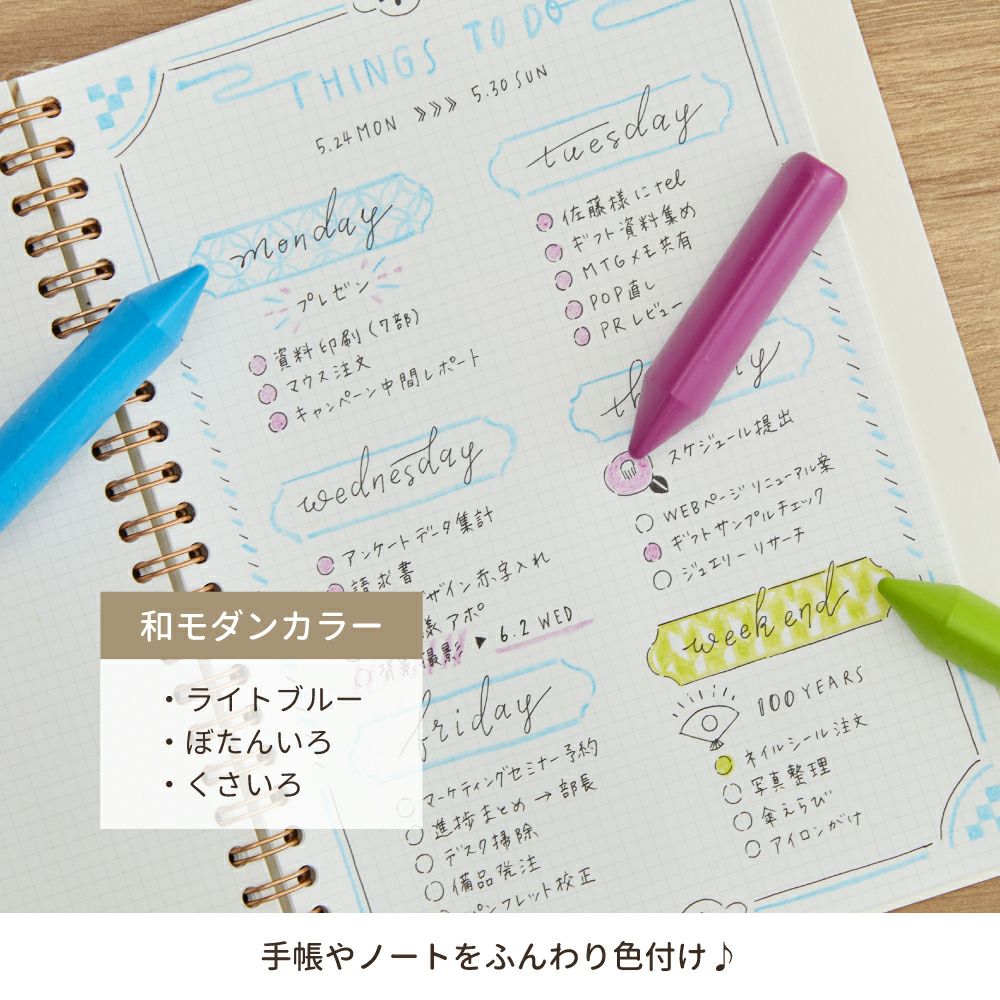 THINGS TO DO
5.24 MON 》》》 5.30 SUN
monday
プレゼン
資料印刷(7部)
マウス注文
キャンペーン中間レポート
tuesday
佐藤様にtel
ギフト資料集め
MTGメモ共有
POP直し
PRレビュー
wednesday
アンケートデータ集計
請求書
ザイン赤字入れ
様アポ
撮影 ▶ 6.2 WED
th y
スケジュール提出
WEBページリニューアル案
ギフトサンプルチェック
ジュエリーリサーチ
friday
マーケティングセミナー予約
進捗まとめ→部長
デスク掃除
備品発注
パンフレット校正
weekend
100 YEARS
ネイルシール注文
写真整理
傘えらび
アイロンがけ
和モダンカラー
・ライトブルー
・ぼたんいろ
・くさいろ
手帳やノートをふんわり色付け♪